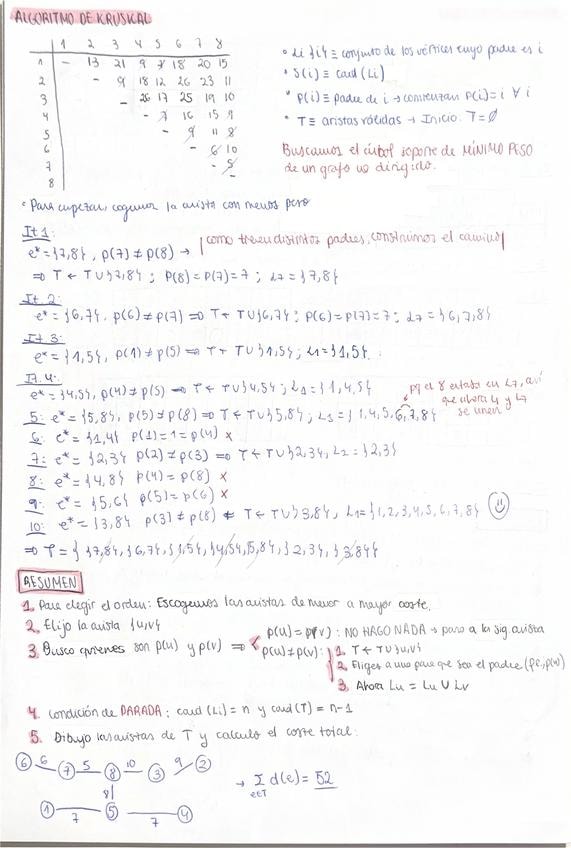 ALGORITMO DE KRUSKAL
1 2 3 4 5 6 7 8
1 - 13 21 9 7 18 20 15
2 - 9 18 12 26 23 11
3 - 26 17 25 19 10
4 - 7 16 15 9
5 - 9 11 8
6 - 6 10
7 - 5
8
• Li {i} ≡ conjunto de los vértices cuyo padre es i
• S(i) ≡ card (Li)
• P(i) ≡ padre de i → comienzan P(i)=i ∀ i
• T ≡ aristas válidas → Inicio: T=∅
Buscamos el árbol soporte de MÍNIMO PESO
de un grafo no dirigido.
• Para empezar, cogemos la arista con menos peso
It 1:
e* = {7,8}, p(7) ≠ p(8) → como tienen distintos padres, construimos el camino
⇒ T ← T∪{7,8} ; P(8) = P(7) = 7 ; L7 = {7,8}
It. 2:
e* = {6,7}, p(6) ≠ p(7) ⇒ T ← T∪{6,7} ; P(6) = P(7) = 7 ; L7 = {6,7,8}
It 3:
e* = {1,5}, p(1) ≠ p(5) ⇒ T ← T∪{1,5} ; L1 = {1,5}
It 4:
e* = {4,5}, p(4) ≠ p(5) ⇒ T ← T∪{4,5} ; L1 = {1,4,5}
5: e* = {5,8}, p(5) ≠ p(8) ⇒ T ← T∪{5,8} ; L1 = {1,4,5,6,7,8}
pq el 8 estaba en L7, así
que ahora L1 y L7
se unen
6: e* = {1,4} p(1) = 1 = p(4) x
7: e* = {2,3} p(2) ≠ p(3) ⇒ T ← T∪{2,3}, L2 = {2,3}
8: e* = {4,8} p(4) = p(8) x
9: e* = {5,6} p(5) = p(6) x
10: e* = {3,8} p(3) ≠ p(8) ⇐ T ← T∪{3,8}, L1 = {1,2,3,4,5,6,7,8}
⇒ T = { {7,8}, {6,7}, {1,5}, {4,5}, {5,8}, {2,3}, {3,8} }
RESUMEN
1. Para elegir el orden: Escogemos las aristas de menor a mayor coste.
2. Elijo la arista {u,v}
3. Busco quienes son p(u) y p(v) ⇒
p(u) = p(v) : NO HAGO NADA → paso a la sig. arista
p(u) ≠ p(v) : 1. T ← T∪{u,v}
2. Eliges a uno para que sea el padre
3. Ahora Lu = Lu ∪ Lv
4. Condición de PARADA: card (Li) = n y card (T) = n-1
5. Dibujo las aristas de T y calculo el coste total:
6 6 7 5 8 10 3 9 2
8
1 7 5 7 4
→ Σ d(e) = 52
e∈T